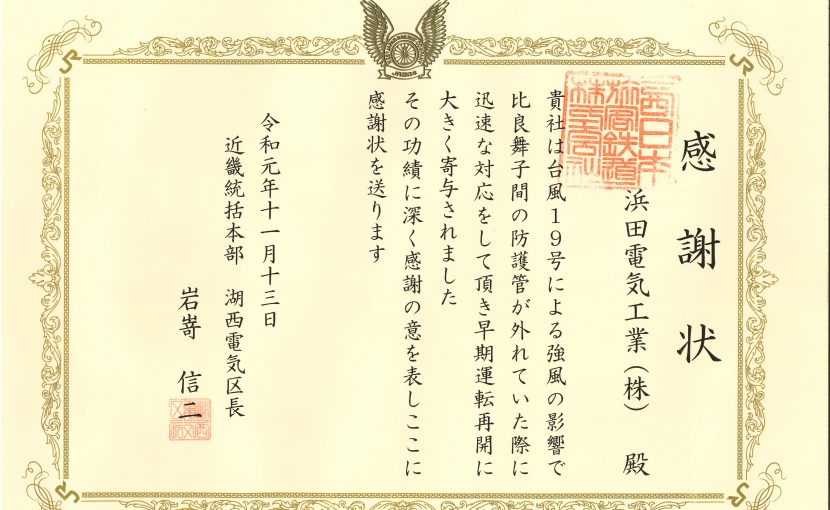 感謝状
浜田電気工業(株) 殿
貴社は台風19号による強風の影響で
比良舞子間の防護管が外れていた際に
迅速な対応をして頂き早期運転再開に
大きく寄与されました
その功績に深く感謝の意を表しここに
感謝状を送ります
令和元年十一月十三日
近畿統括本部 湖西電気区長
岩嵜 信二
西日本
旅客鉄道
株式会社
JR
JR
JR
JR